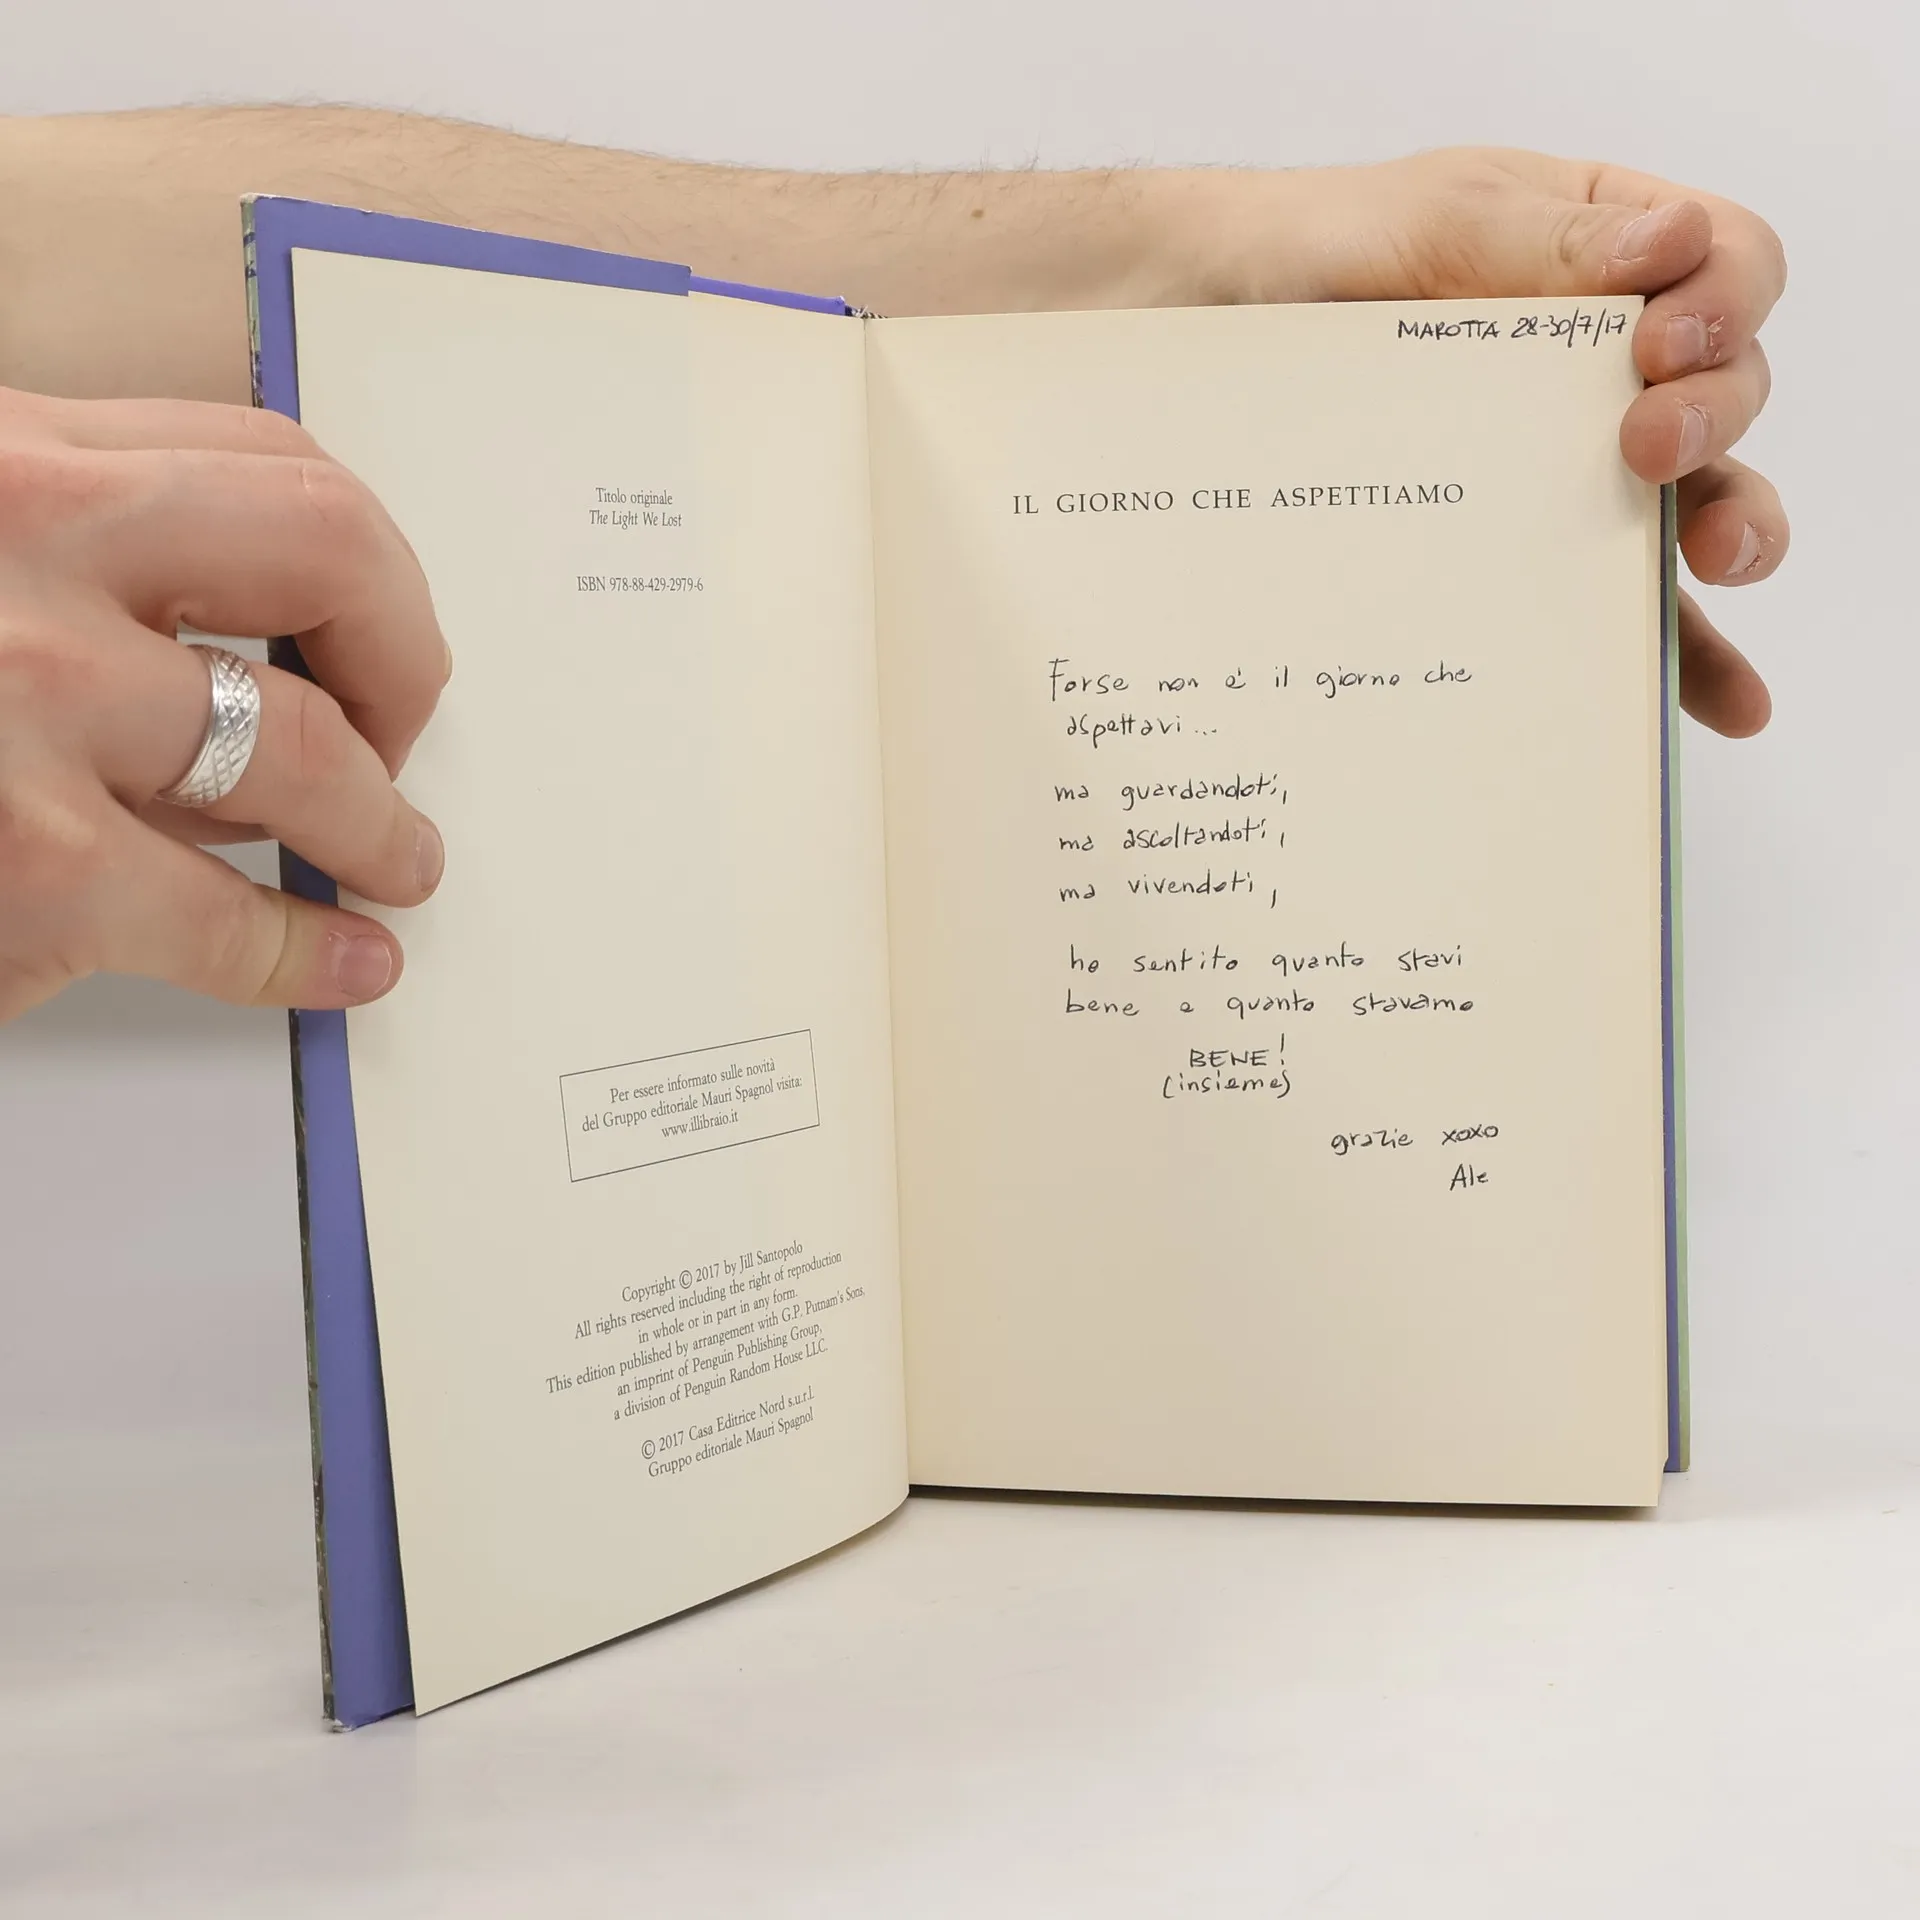 Titolo originale
The Light We Lost
ISBN 978-88-429-2979-6
Per essere informato sulle novità
del Gruppo editoriale Mauri Spagnol visita:
www.illibraio.it
Copyright © 2017 by Jill Santopolo
All rights reserved including the right of reproduction
in whole or in part in any form.
This edition published by arrangement with G.P. Putnam's Sons,
an imprint of Penguin Publishing Group,
a division of Penguin Random House LLC.
© 2017 Casa Editrice Nord s.u.r.l.
Gruppo editoriale Mauri Spagnol
MAROTTA 28-30/7/17
IL GIORNO CHE ASPETTIAMO
Forse non è il giorno che
aspettavi...
ma guardandoti,
ma ascoltandoti,
ma vivendoti,
ho sentito quanto stavi
bene e quanto stavamo
BENE!
(insieme)
grazie xoxo
Ale